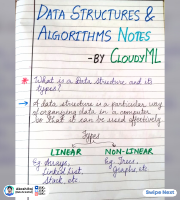 DATA STRUCTURES &
ALGORITHMS NOTES
-BY CLOUDYML
* What is a Data Structure and its
types?
→ A data structure is a particular way
of organizing data in a computer
so that it can be used effectively.
Types
LINEAR
NON-LINEAR
Eg. Arrays,
Linked List,
Stack, etc
Eg. Trees,
Graphs etc
Swipe Next